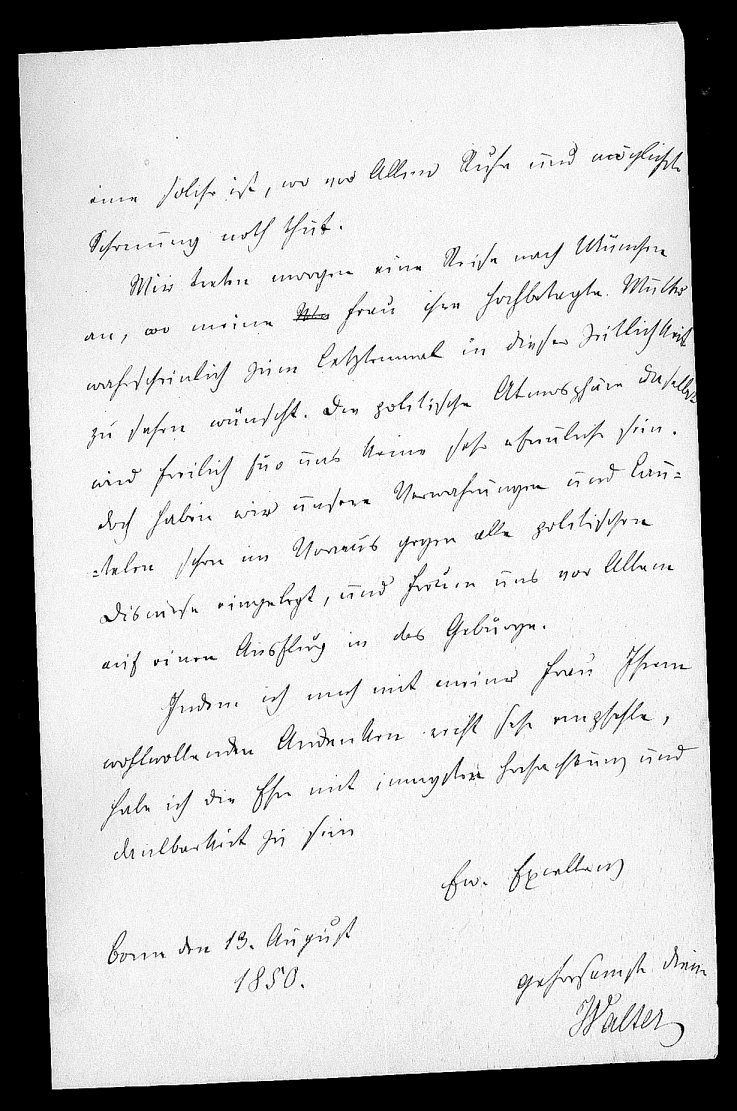 eine solche ist, wo vor Allem Ruhe und möglichste
Schonung noth thut.
Wir treten morgen eine Reise nach München
an, wo meine Frau ihre hochbetagte Mutter
wahrscheinlich zum letztenmal in dieser Zeitlichkeit
zu sehen wünscht. Die politische Atmosphäre daselbst
wird freilich für uns keine sehr erfreuliche sein.
doch haben wir unsere Verwahrungen und Cau=
=telen schon im Voraus gegen alle politischen
Discurse eingelegt, und freuen uns vor Allem
auf einen Ausflug in das Gebürge.
Indem ich mich mit meiner Frau Ihrem
wohlwollenden Andenken recht sehr empfehle,
habe ich die Ehre mit innigster Hochachtung und
Dankbarkeit zu sein
Ew. Excellenz
Bonn den 13. August
1850.
gehorsamster Diener
Walter